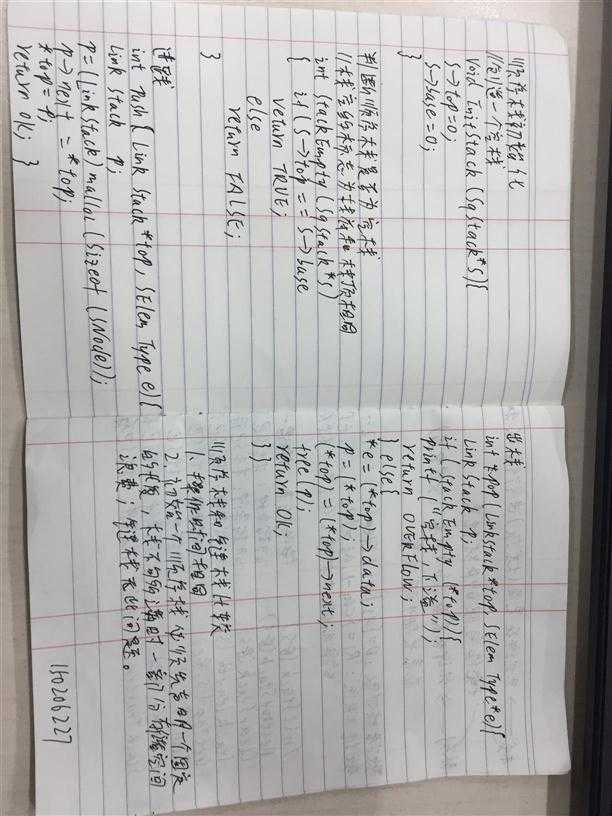 顺序栈初始化
//创造一个空栈
void InitStack(SqStack*S){
S->top=0;
S->base=0;
}
判断顺序栈是否为空栈
//栈空的标志为栈底和栈顶相同
int StackEmpty(SqStack*S)
{ if(S->top==S->base
return TRUE;
else
return FALSE;
}
进栈
int push(Link Stack*top,SElem Type e){
Link Stack p;
p=(LinkStack)malloc(Sizeof(SNode));
p->next=*top;
*top=p;
return OK; }
出栈
int pop(LinkStack*top,SElem Type*e){
Link Stack p;
if(StackEmpty(*top)){
printf("空栈,下溢");
return OVERFLOW;
}else{
*e=(*top)->data;
p=(*top);
(*top)=(*top)->next;
free(p);
return OK;
}}
顺序栈和链栈比较
1.操作时间相同
2.初始一个顺序栈必须先声明一个固定
的长度,栈不够满时一部分存储空间
浪费,链栈无此问题。
150206227